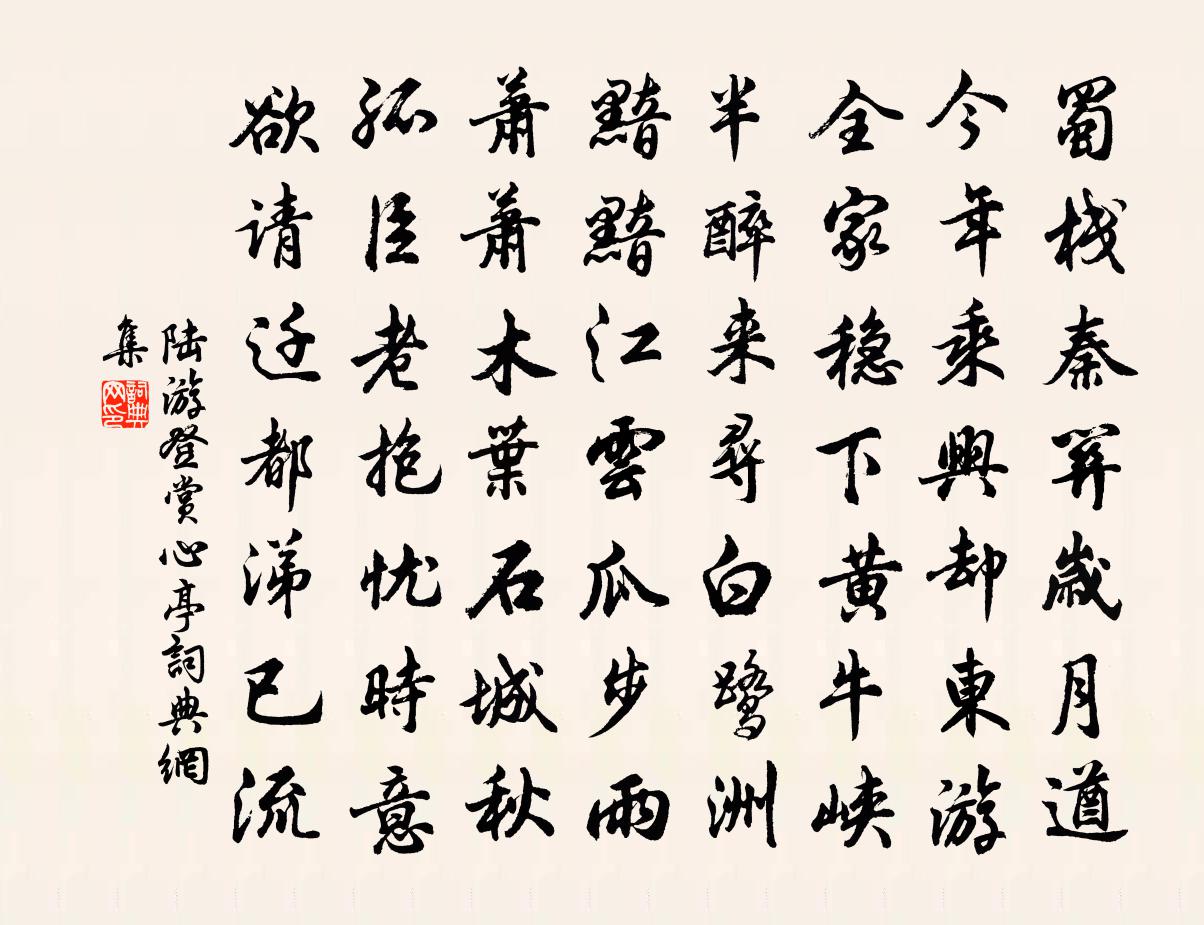 蜀栈秦関歳月遒
今年乘興却東游
全家稳下黄牛峡
半醉来尋白鹭洲
黯黯江雲瓜步雨
萧萧木葉石城秋
孤臣老抱忧時意
欲请迁都涕已流
陆游登赏心亭詞典網
集
詞典
网印